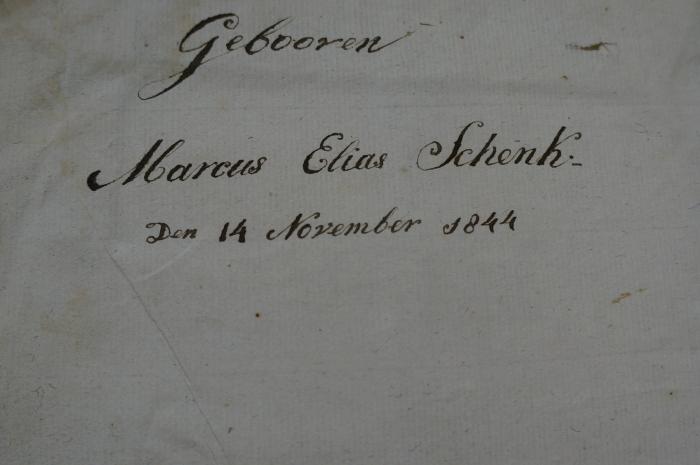 Gebooren
Marcus Elias Schenk.
Den 14 November 1844